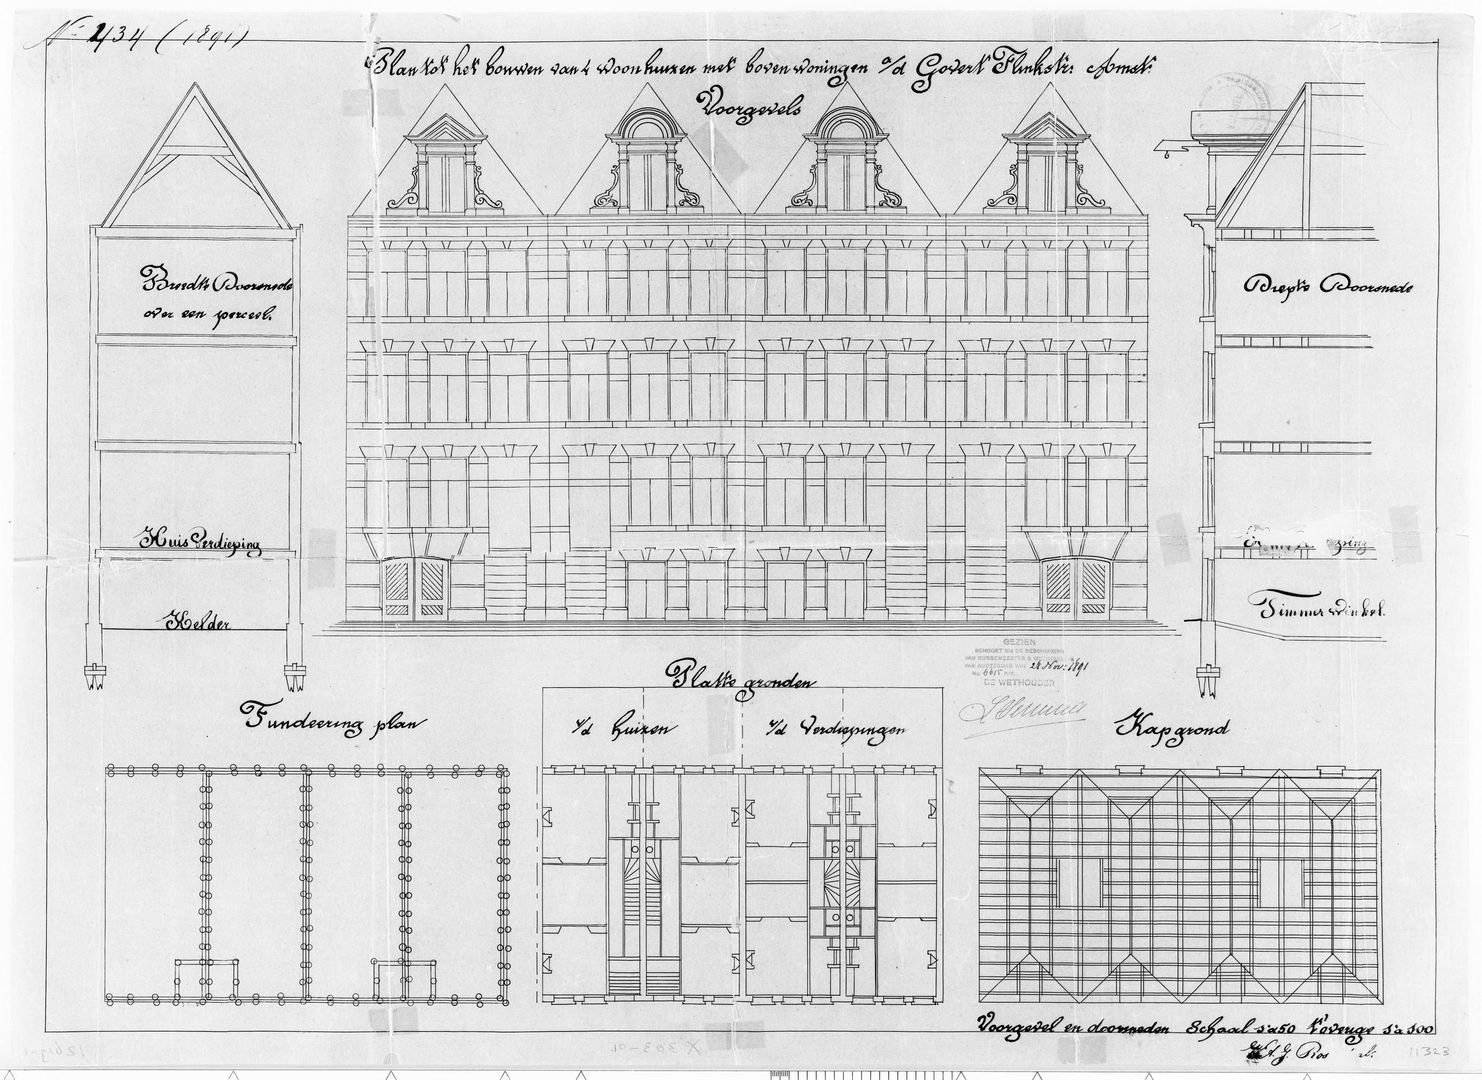 No 434 (1891)
Plan tot het bouwen van 4 woonhuizen met bovenwoningen a/d Govert Flinkstr: Amst:
Voorgevels
Breedte Doorsnede
over een perceel.
Diepte Doorsnede
Huis Verdieping
Kelder
Timmerwinkel.
GEZIEN
BEHOORT BIJ DE BESCHIKKING
VAN BURGEMEESTER & WETHOUDERS
VAN AMSTERDAM VAN 28 Nov: 1891
No.
DE WETHOUDER
Platte gronden
Fundeering plan
v/d huizen
v/d Verdiepingen
Kapgrond
Voorgevel en doorsneden Schaal 1 à 50 't overige 1 à 100
G. Ros
11323